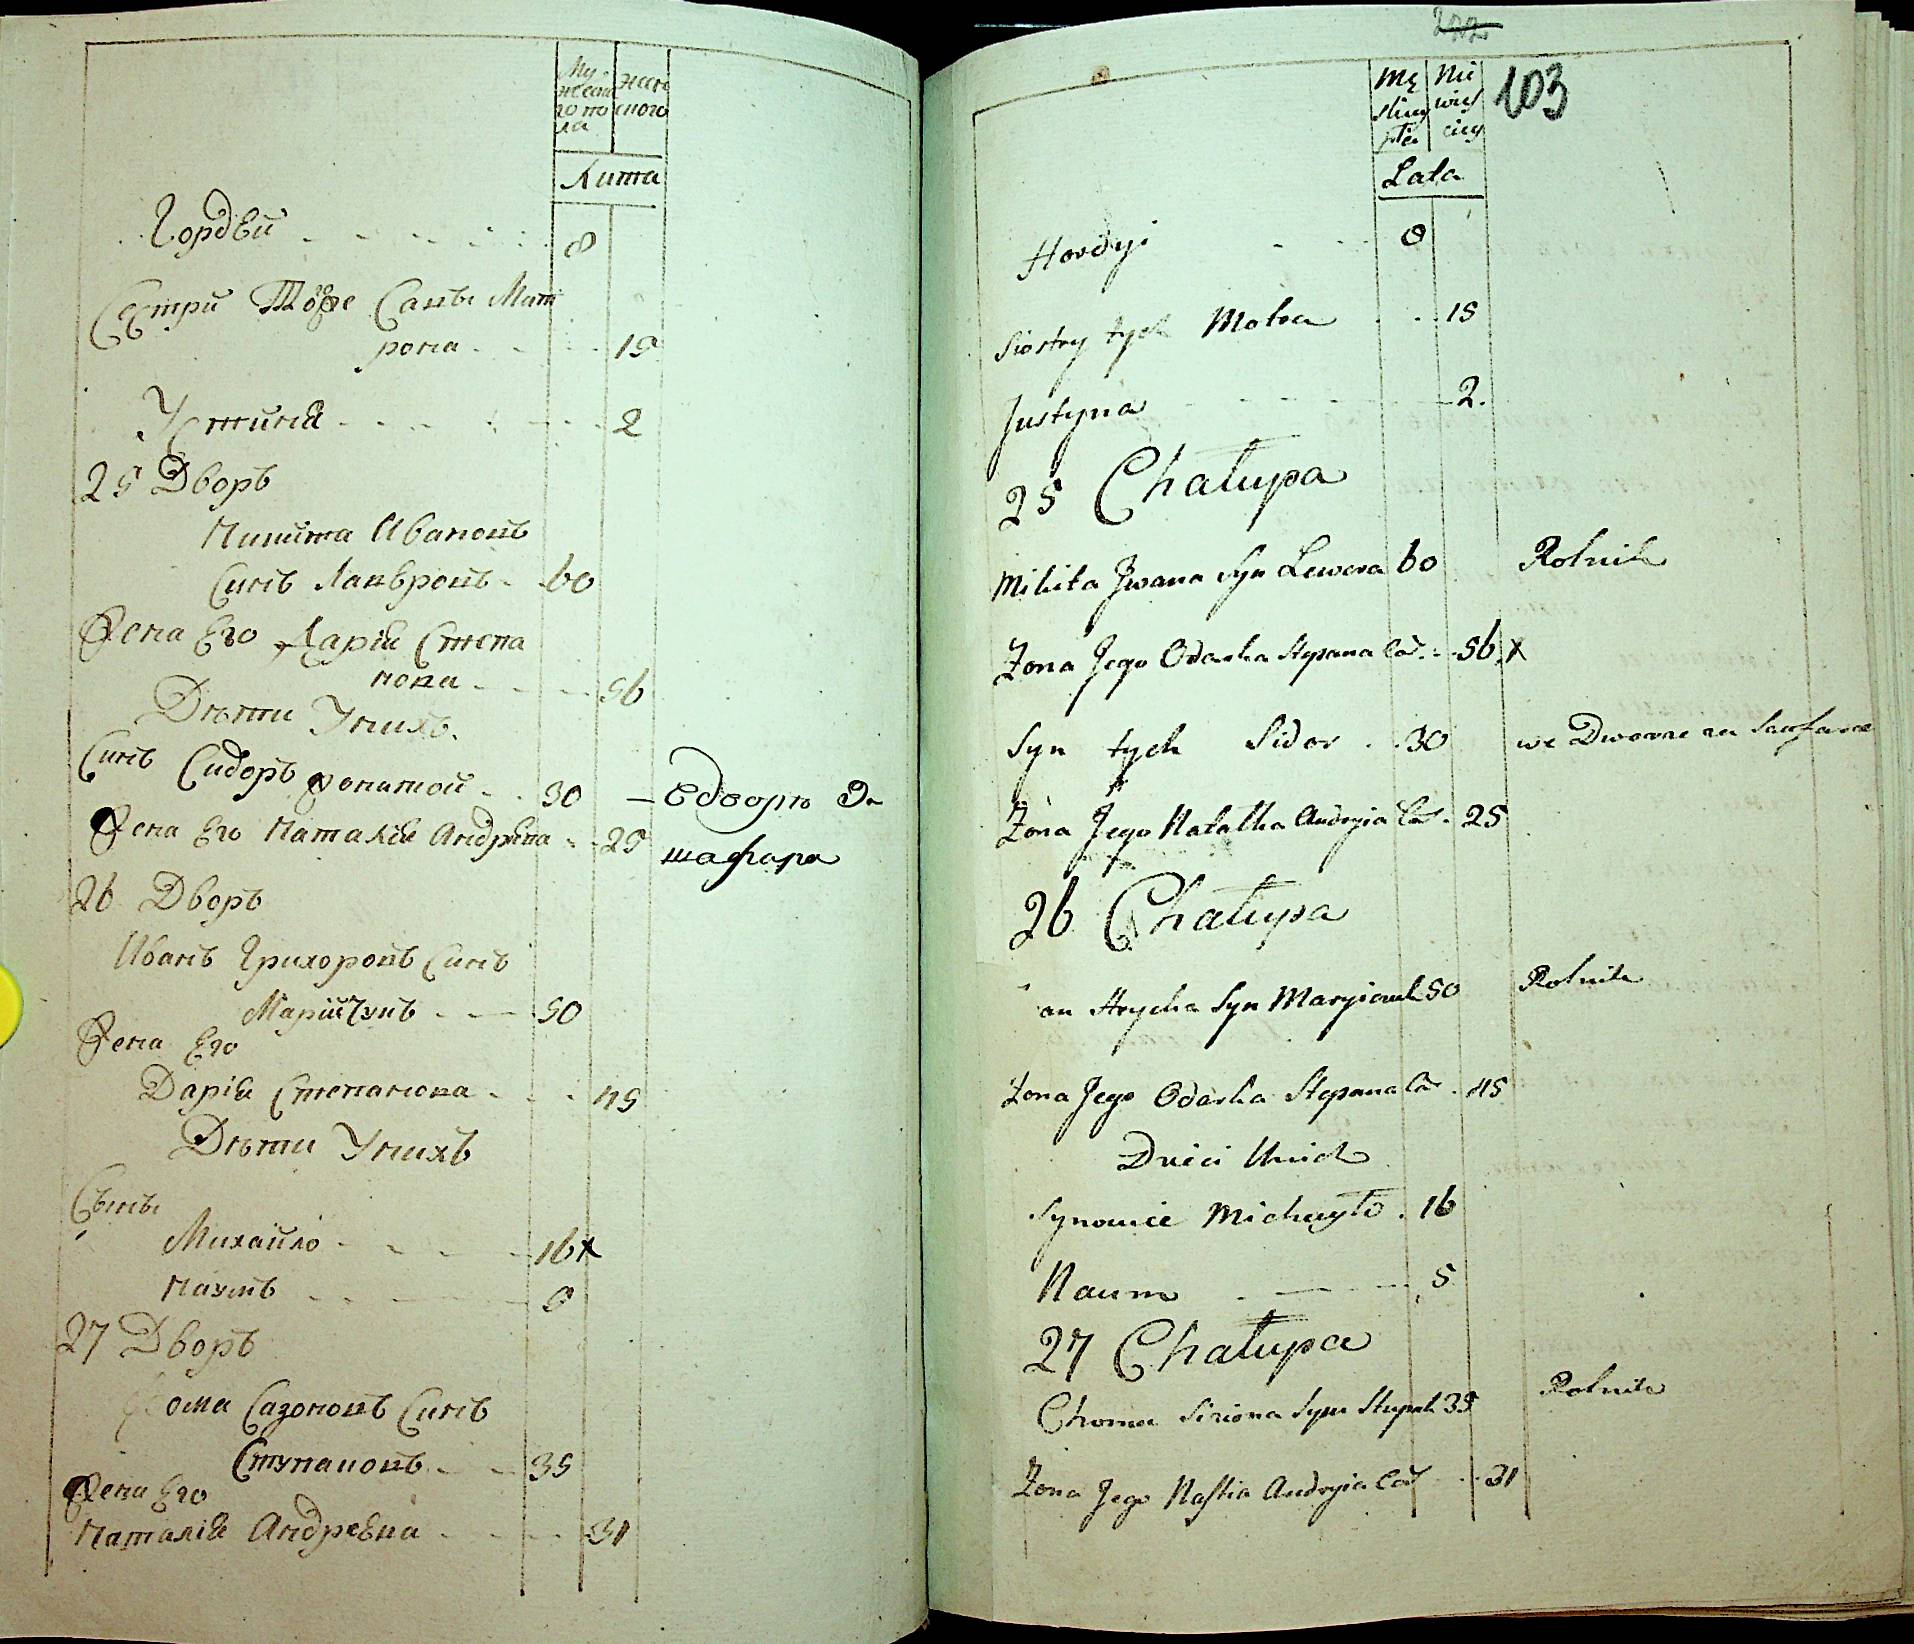 Му
жеска
го по
ла
женс
кого
Лита
Гордѣй 8
Сестри Тоже Савы Мат
рона 15
Устинія 2
25 Дворъ
Никита Ивановъ
Синъ Лавѣровъ 60
Жена Его Дарія Степа
нова 56
Дѣти Унихъ
Синъ Сидоръ женатой 30 — вдворѣ За
Жена Его Наталія Андрѣева 25 шафара
26 Дворъ
Иванъ Грихоровъ Синъ
Марійчукъ 50
Жена Его
Дарія Степанова 45
Дѣти Унихъ
Сыны
Михайло 16 x
Наумъ
27 Дворъ
Фома Сазоновъ Синъ
Ступаковъ 35
Жена Его
Наталія Андреѣва 31
202
103
Lata
Hordyi 8
Siostry tych Motra 15
Justyna 2.
25 Chałupa
Mikita Jwana Syn Lewera 60 Rolnik
Zona Jego Odarka Stepana Cór. 56 x
Syn tych Sidor 30 we Dworze za Szafara
Zona Jego Natalka Andryia Cór. 25
26 Chałupa
an Hrycka Syn Maryiczuk 50 Rolnik
Zona Jego Odarka Stepana Cór 45
Dzieci Unich
Synowie Michayło 16
Naum 5
27 Chałupa
Choma Syn Stupak 35 Rolnik
Zona Jego Nastia Andryia Cór 31